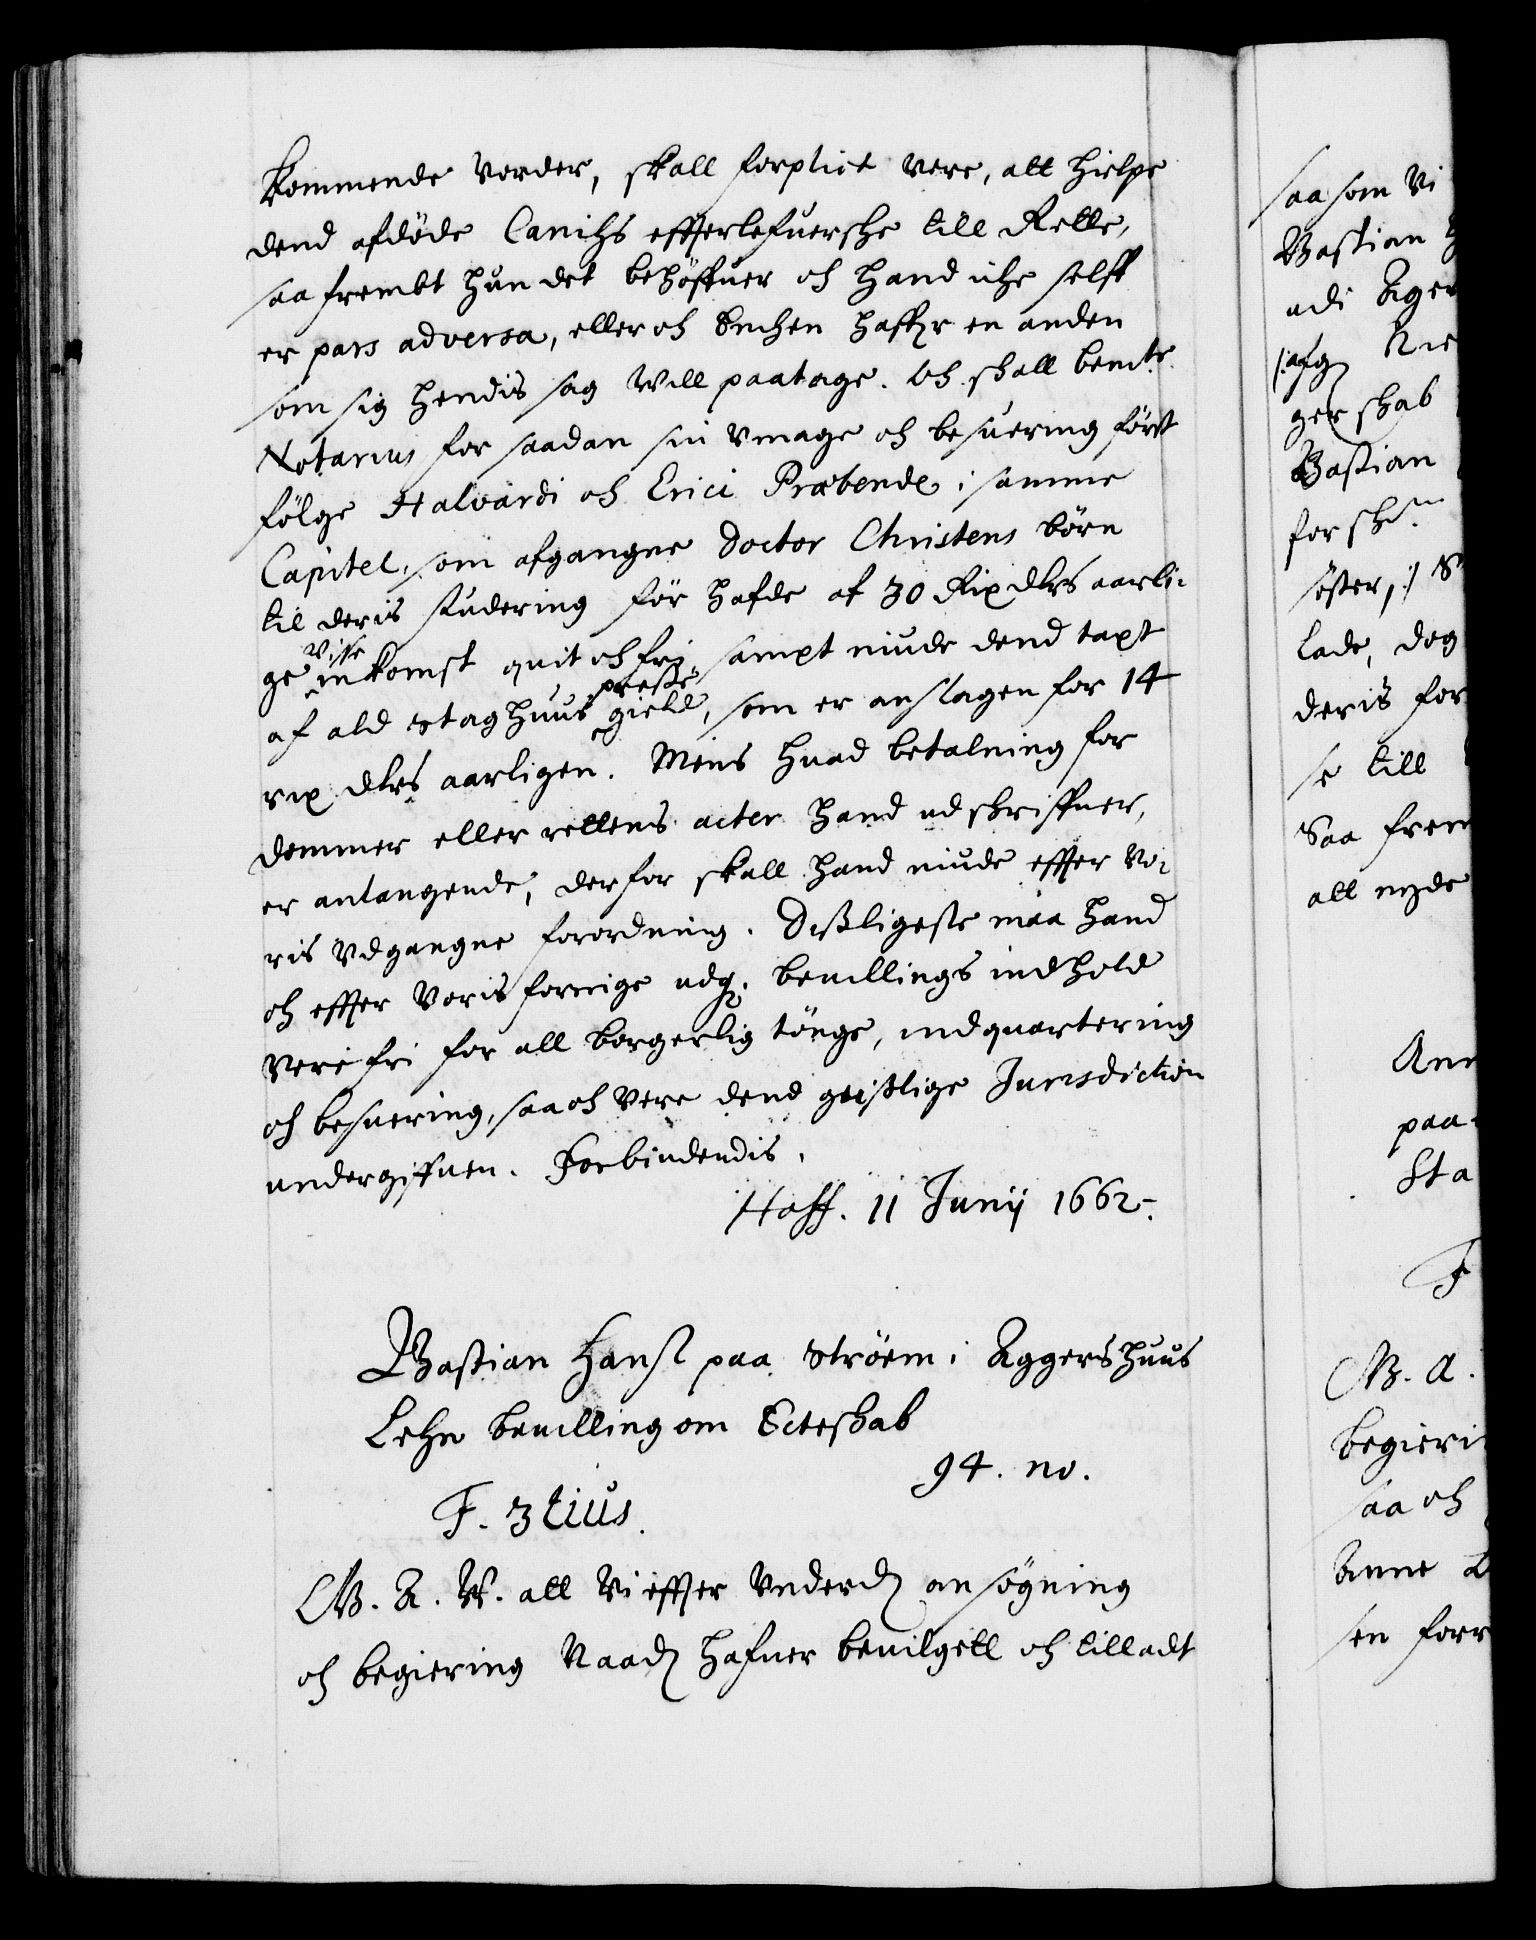 kommende vorder, skall forplict vere, att hielpe
dend afdöde Canichs effterlefuerske till Rette,
saa frembt hun det behöffuer och hand iche selff
er pars adversa, eller och Enchen haffr en anden
som sig hendis sag will paatage. Och skall bemte
Notarius for saadan sin Vmage och besuering först
følge Halvardi och Erici Præbende i samme
Capitel, som afgangne Doctor Christens börn
til deris studering för hafde af 30 Rix dlrs aarli-
ge visse inkomst quit och fri, sampt niude dend taxt
af ald Stag huus preste gield, som er anslagen for 14
rix dlrs aarligen. Mens huad betalning for
dommer eller rettens acter hand udskriffuer,
er anlangende, derfor skall hand niude effter Vo-
ris Vdgangne forordning. Dißligeste maa hand
och effter Voris forrige udg. beuillings indhold
vere fri for all borgerlig tönge, indquartering
och besuering, saa och vere dend geistlige Jurisdiction
undergiffuen. Forbindendis.
Haff. 11 Junij 1662.
Bastian Hanß paa Ströem i Aggershuus
Lehn beuilling om Ecteskab
94. no.
F. 3tius.
W. A. W. att Vi effter Vnderd ansögning
och begiering Naad hafuer beuilgett och tilladt
saa som Vi
Bastian
udi Ager
afg
gerskab
Bastian
for
søster
lade, dog
deris for
se till
Saa frem
att nyde
Ann
paa
Sta
F
W. A.
begieri
saa och
Anne
sen forr